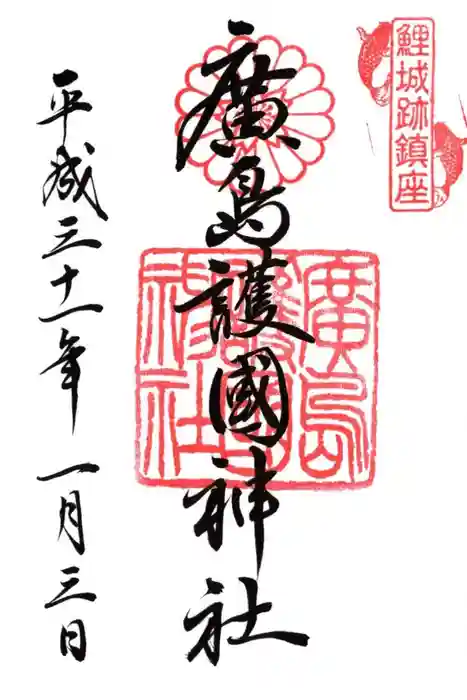 鯉城跡鎮座
廣島護國神社
廣島護國神社
平成三十一年 一月三日